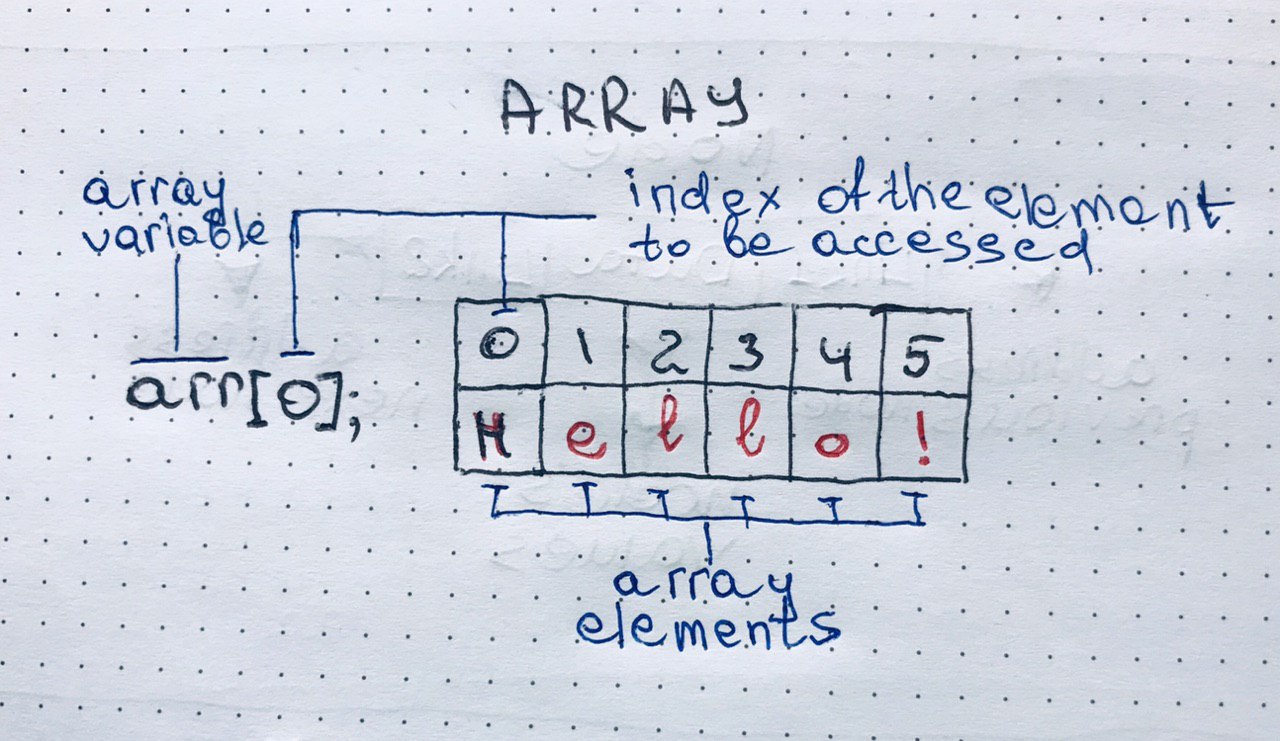 ARRAY
array
variable
index of the element
to be accessed
arr[0];
0 1 2 3 4 5
H e l l o !
array
elements